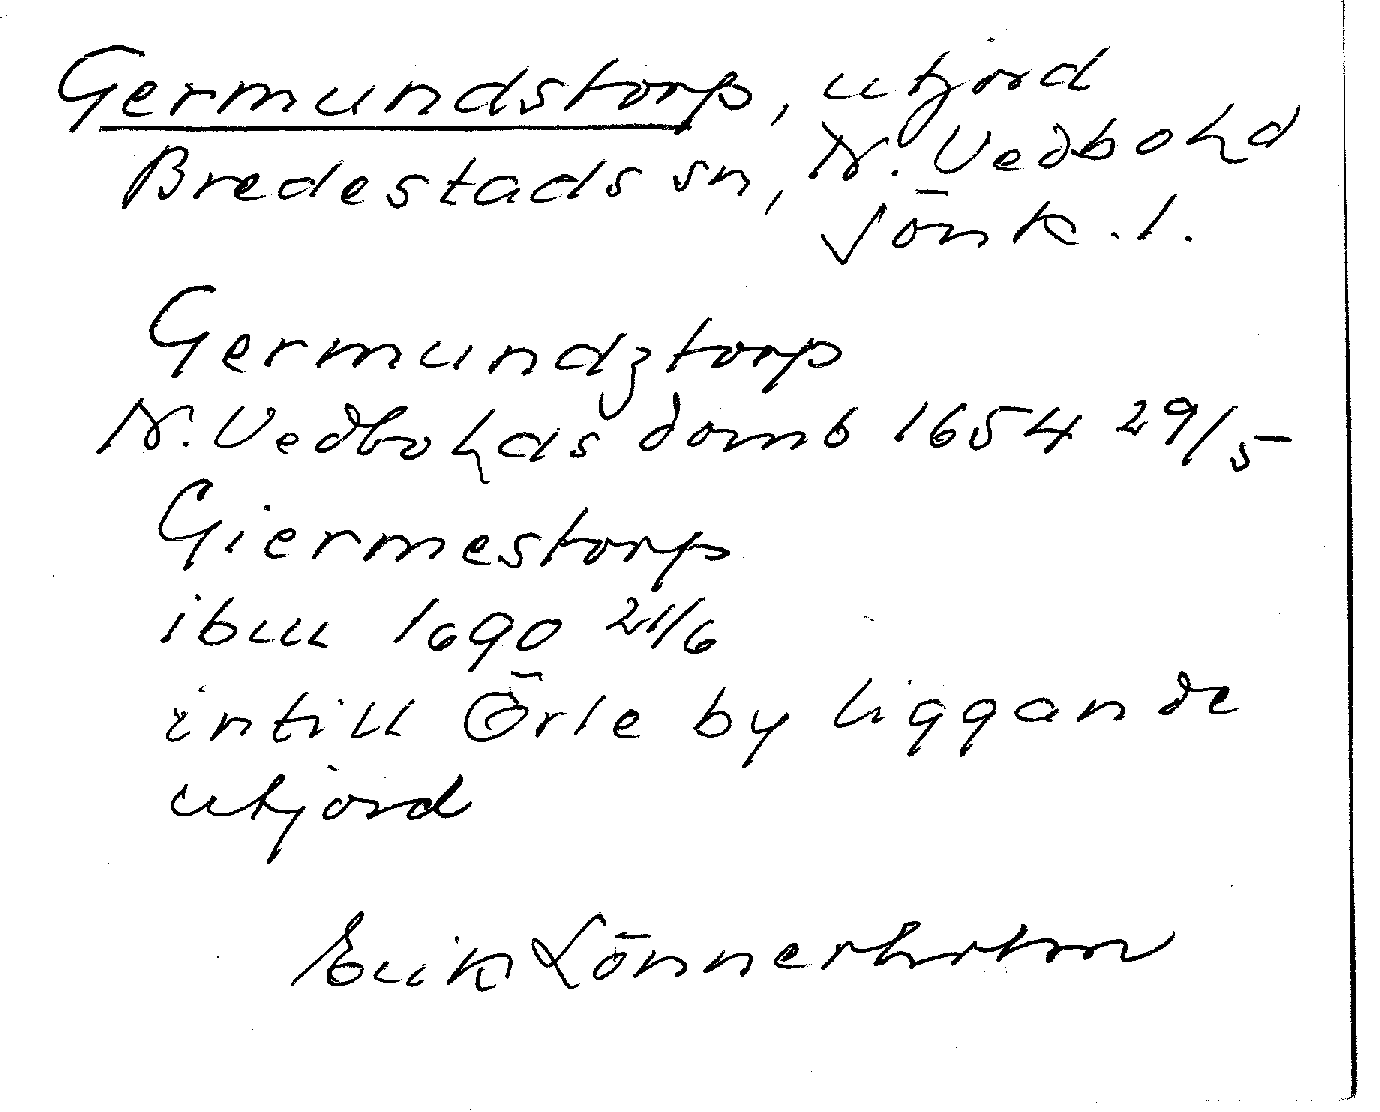 Germundstorp, utjord
Bredestads sn, N. Vedbohd
Jönk. l.
Germundztorp
N. Vedbohds domb 1654 29/5
Giermestorp
ibm 1690 21/6
intill Örle by liggande
utjord
Erik Lönnerholm